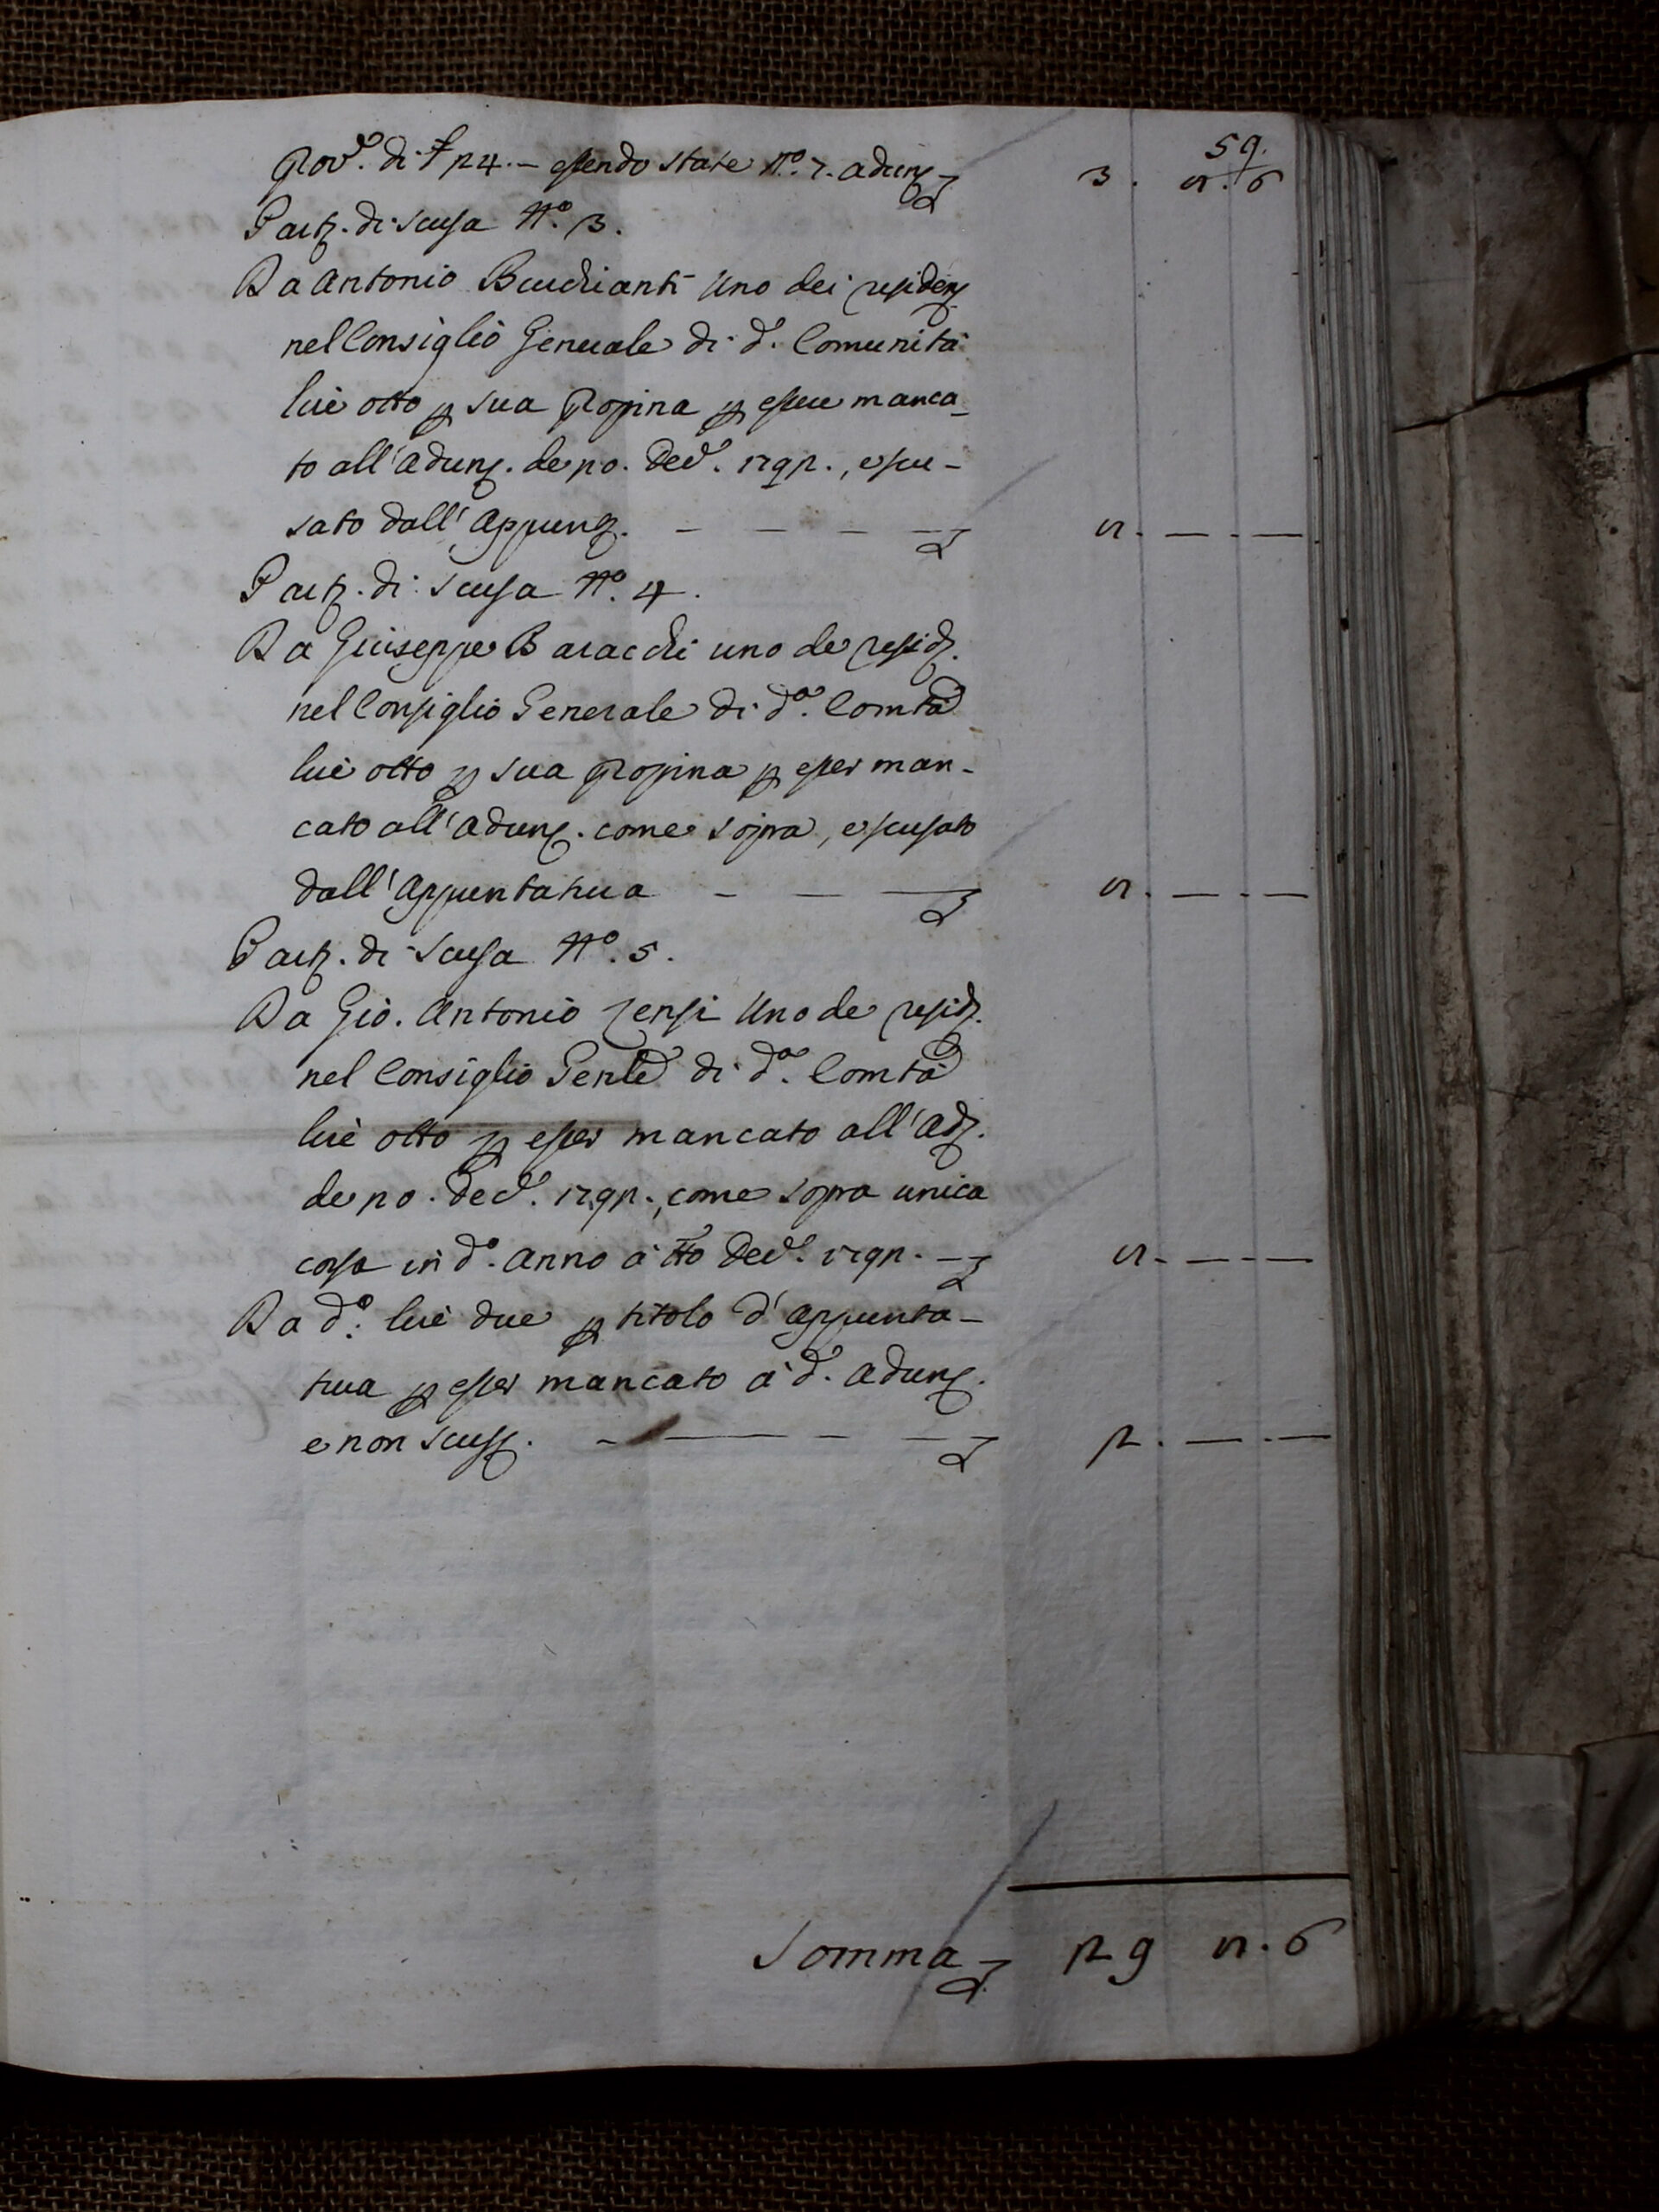 59.
Prov.e di £ 24. — essendo state N.o 7. adunz. £ 3. 8. 6
Partz. di scusa N.o 3.
Da Antonio Burchianti Uno dei residenz.
nel Consiglio Generale di d.a Comunità
lire otto p sua propina p essere manca-
to all'adunz. de 20. Dec.e 1792., e scu-
sato dall'appunz. — — — — £ 8. — . —
Partz. di scusa N.o 4.
Da Giuseppe Baracchi uno de residz.
nel Consiglio Generale di d.a Comtà
lire otto p sua propina p esser man-
cato all'adunz. come sopra, e scusato
dall'appuntatura — — — £ 8. — . —
Partz. di scusa N.o 5.
Da Gio. Antonio Sensi Uno de residz.
nel Consiglio Genle di d.a Comtà
lire otto p esser mancato all'adz.
de 20. Dec.e 1792., come sopra unica
corsa in d.o anno a tto Dec.e 1792. — £ 8. — . —
Da d.o lire due p titolo d'appunta-
tura p esser mancato a d.a adunz.
e non scusz. — — — — £ 2. — . —
Somma £ 29 8. 6